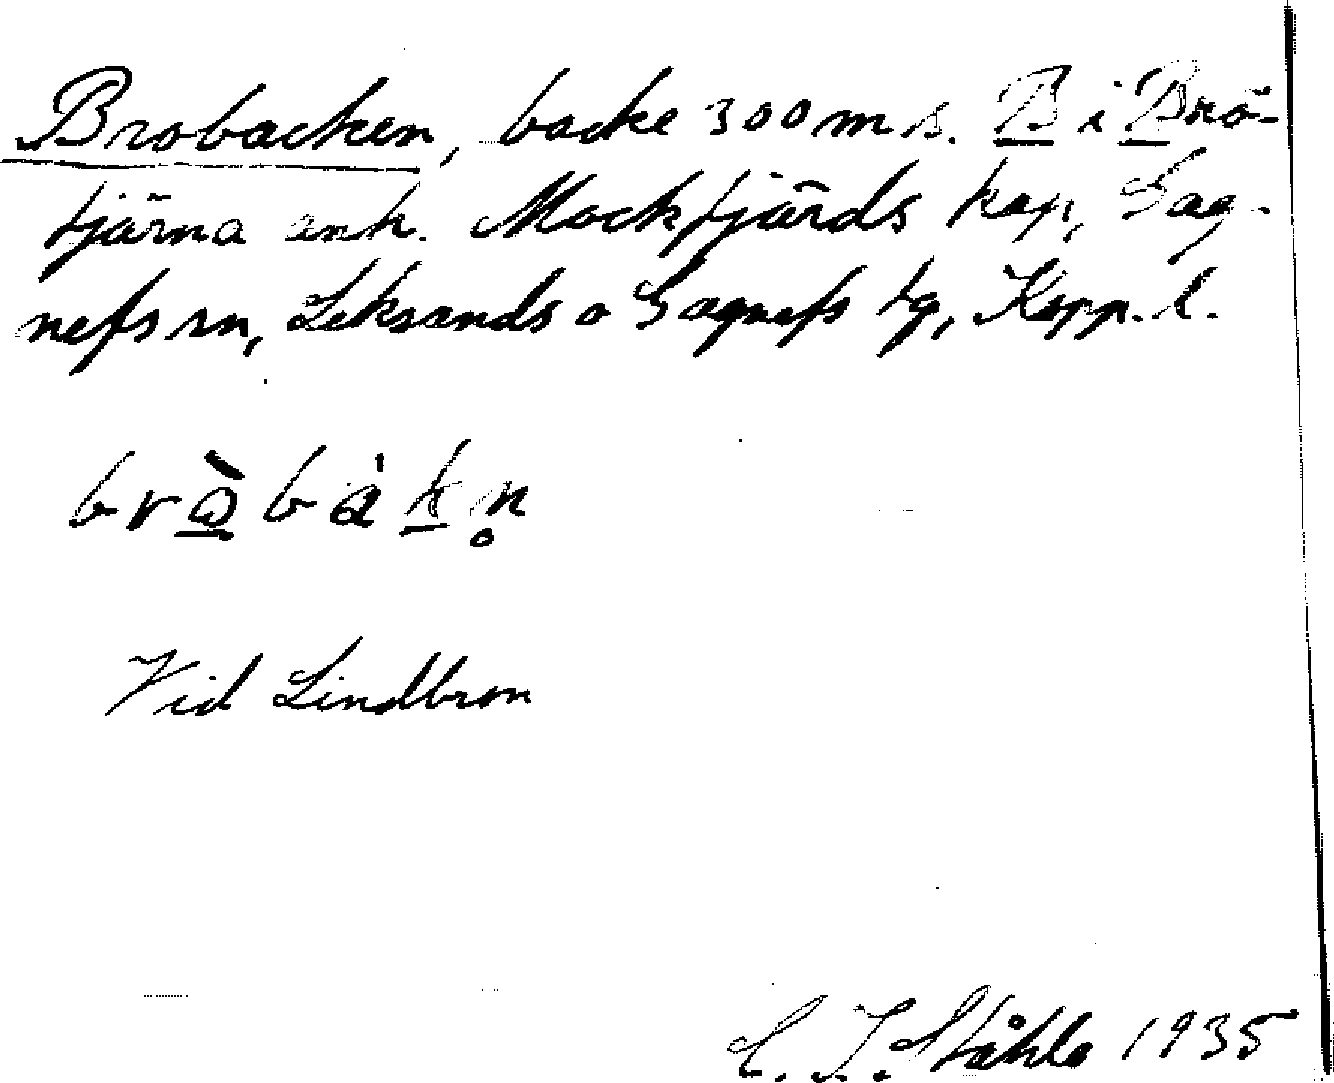 Brobacken, backe 300 m s. B i Brö-
tjärna anh. Mockfjärds kap, Gag-
nefs sn, Leksands o Gagnefs tg, Kopp. l.
brò̱bàḵn̥
Vid Lindbron
C. I. Ståhle 1935